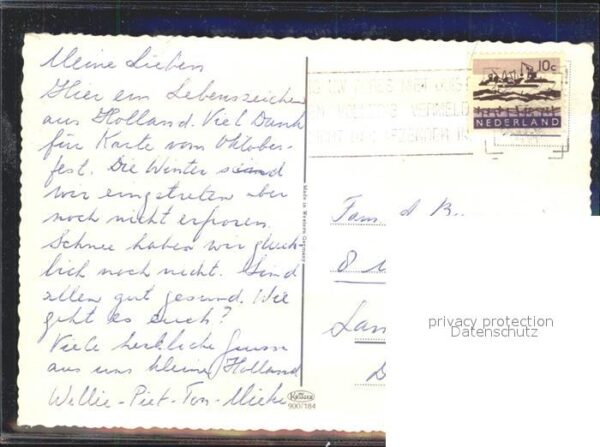 Meine Lieben
Hier ein Lebenszeichen
aus Holland. Viel Dank
für Karte vom Oktober-
fest. Die Winter sind
wir eingetreten aber
noch nicht erfroren.
Schnee haben wir glück-
lich noch nicht. Sind
allen gut gesund. Wie
geht es euch?
Viele herzliche Grüsse
aus uns kleine Holland
Wellie-Piet-Ton-Mieke
Made in Western Germany
Krüger
900/184
10c
NEDERLAND
Fam. A B..
8
Lan
D
privacy protection
Datenschutz